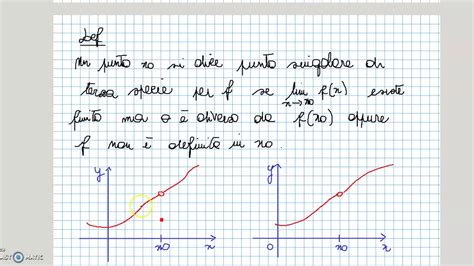 Def
Un punto x0 si dice punto singolare di
terza specie per f se lim f(x) esiste
x→x0
finito ma o è diverso da f(x0) oppure
f non è definita in x0.
y
y
x0
x
0
x0
x